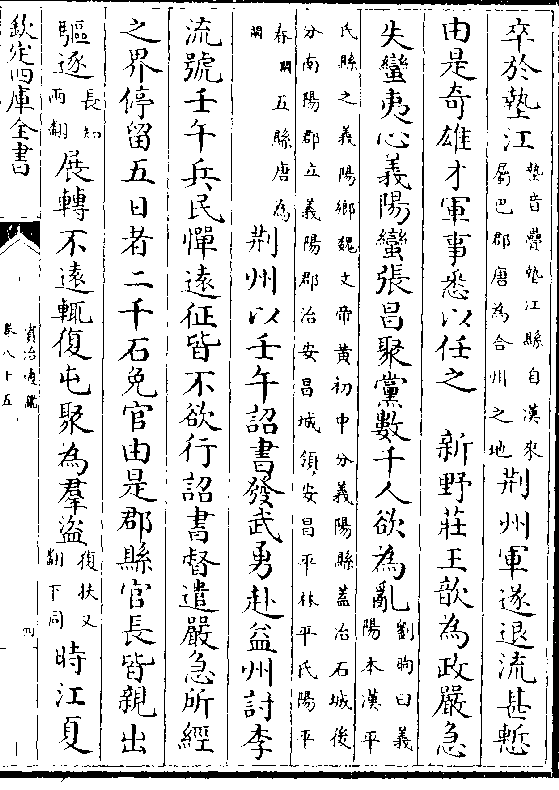 卒於墊江墊音疊墊江縣自漢來屬巴郡唐為合州之地荆州軍遂退流甚慙
由是奇雄才軍事悉以任之　新野莊王歆為政嚴急
失蠻夷心義陽蠻張昌聚黨數千人欲為亂劉昫曰義陽本漢平
氏縣之義陽鄉魏文帝黄初中分義陽縣蓋治石城後分南陽郡立義陽郡治安昌城領安昌平林平氏陽平
春五縣唐為荆州以壬午詔書發武勇赴益州討李
流號壬午兵民憚遠征皆不欲行詔書督遣嚴急所經
之界停留五日者二千石免官由是郡縣官長皆親出
驅逐長知兩翻展轉不遠輒復屯聚為羣盜復扶又翻下同時江夏
欽定四庫全書
資治通鑑
卷八十五
四